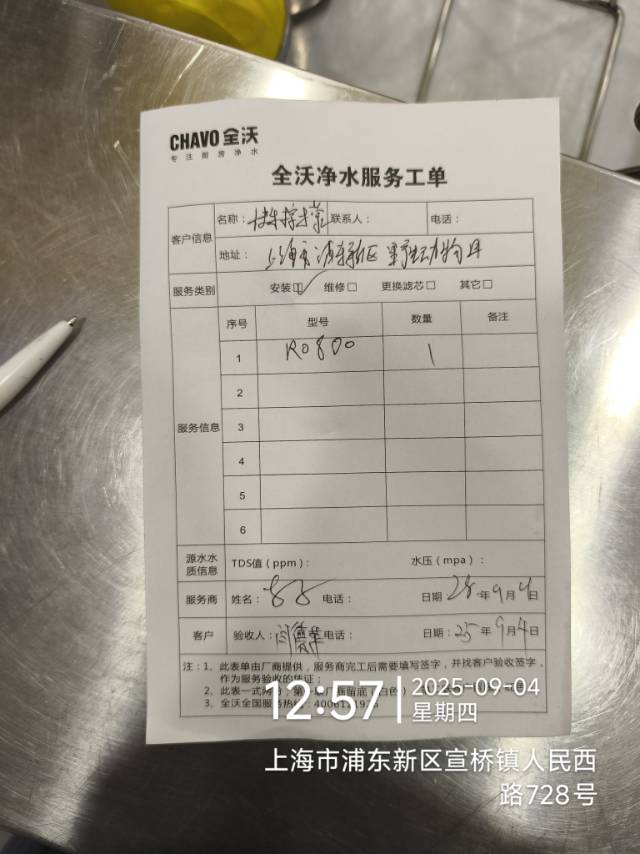 CHAVO 全沃
专注厨房净水
全沃净水服务工单
客户信息
名称： 联系人： 电话：
地址：上海市浦东新区野生动物园
服务类别 安装☑ 维修□ 更换滤芯□ 其它□
服务信息
序号 型号 数量 备注
1 RO800 1
2
3
4
5
6
源水水质信息 TDS值（ppm）： 水压（mpa）：
服务商 姓名： 电话： 日期 25年9月4日
客户 验收人： 电话： 日期：25年9月4日
注：1、此表单由厂商提供，服务商完工后需要填写签字，并找客户验收签字，
作为服务验收的凭证；
2、此表一式两份：第一联厂商留底（白色）
3、全沃全国服务热线：
12:57 2025-09-04
星期四
上海市浦东新区宣桥镇人民西
路728号